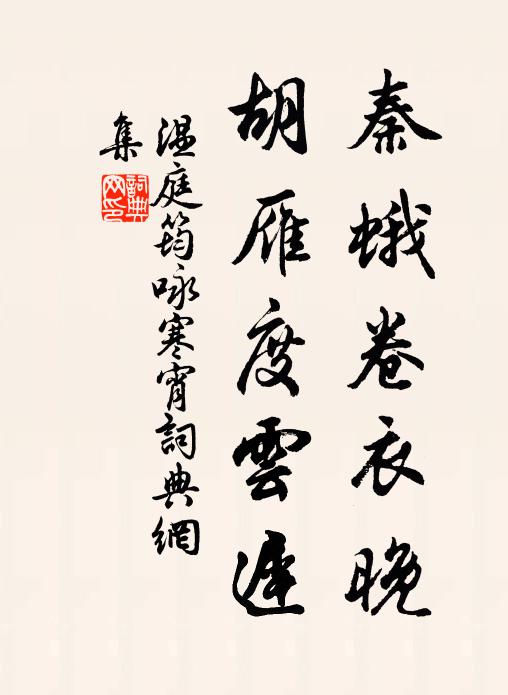 秦蛾卷衣晚
胡雁度雲遲
温庭筠咏寒宵詞典網
集
詞典網印